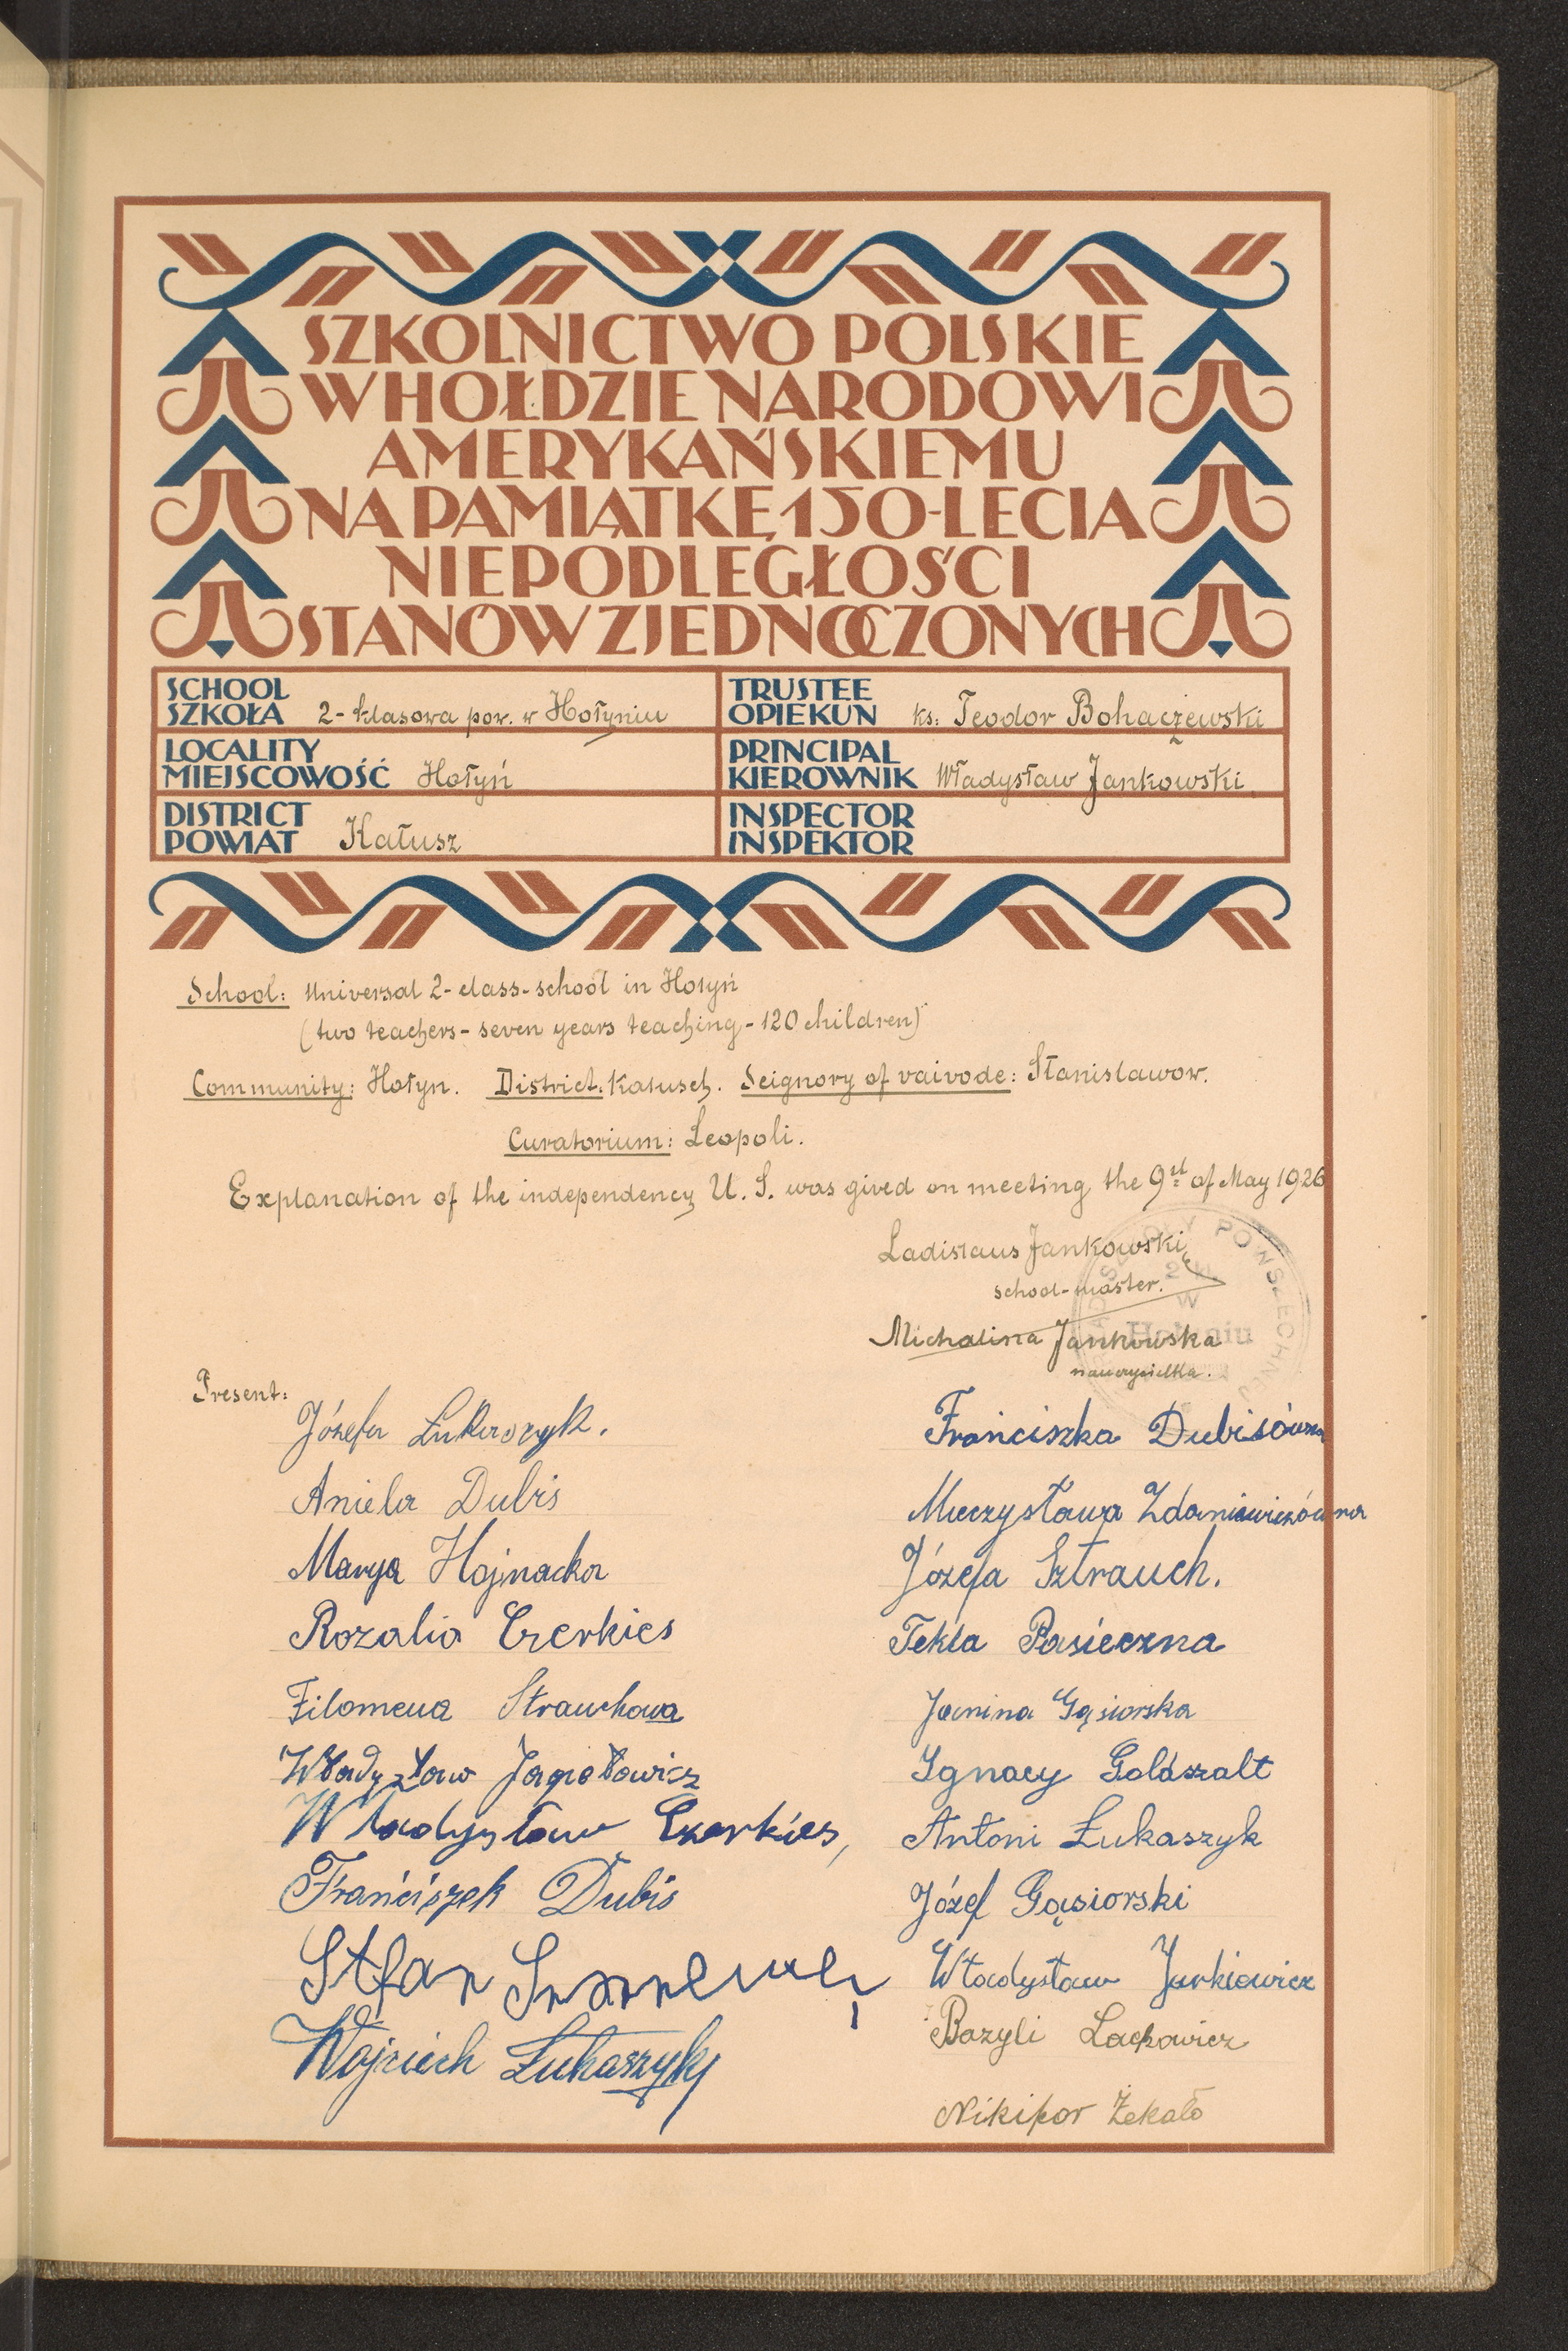 SZKOLNICTWO POLSKIE
W HOŁDZIE NARODOWI
AMERYKAŃSKIEMU
NA PAMIĄTKĘ 150-LECIA
NIEPODLEGŁOŚCI
STANÓW ZJEDNOCZONYCH
SCHOOL
SZKOŁA 2-klasowa pow. w Hołyniu
TRUSTEE
OPIEKUN ks: Teodor Bohaczewski
LOCALITY
MIEJSCOWOŚĆ Hołyń
PRINCIPAL
KIEROWNIK Władysław Jankowski
DISTRICT
POWIAT Kałusz
INSPECTOR
INSPEKTOR
School: Universal 2-class-school in Hołyń
(two teachers - seven years teaching - 120 children)
Community: Hołyn. District: Kałusch. Seignory of vaivode: Stanislawow.
Curatorium: Leopoli.
Explanation of the independency U. S. was gived on meeting the 9st of May 1926
Ladislaus Jankowski
school-master.
Michalina Jankowska
nauczycielka.
POWSZECHNEJ
2
W
Hołyniu
Present:
Józefa Łukaszyk.
Aniela Dubis
Marya Hojnacka
Rozalia Czerkies
Filomena Strauchowa
Władysław Jagiełowicz
Władysław Czerkies,
Franciszek Dubis
Stefan
Wojciech Łukaszyk
Franciszka Dubisówna
Mieczysława Zdaniewiczówna
Józefa Sztrauch.
Tekla Pasieczna
Janina Gąsiorska
Ignacy Goldszalt
Antoni Łukaszyk
Józef Gąsiorski
Władysław Jurkiewicz
Bazyli Lachowicz
Nikifor Żekało